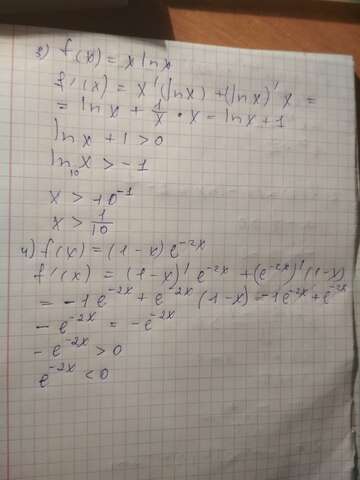 3) f(x) = x ln x
f'(x) = x'(ln x) + (ln x)' x =
= ln x + 1/x • x = ln x + 1
ln x + 1 > 0
ln₁₀ x > -1
x > 10⁻¹
x > 1/10
4) f(x) = (1-x) e^-2x
f'(x) = (1-x)' e^-2x + (e^-2x)' (1-x)
= -1 e^-2x + e^-2x (1-x) - 1e^-2x + e^-2x
- e^-2x = - e^-2x
- e^-2x > 0
e^-2x < 0